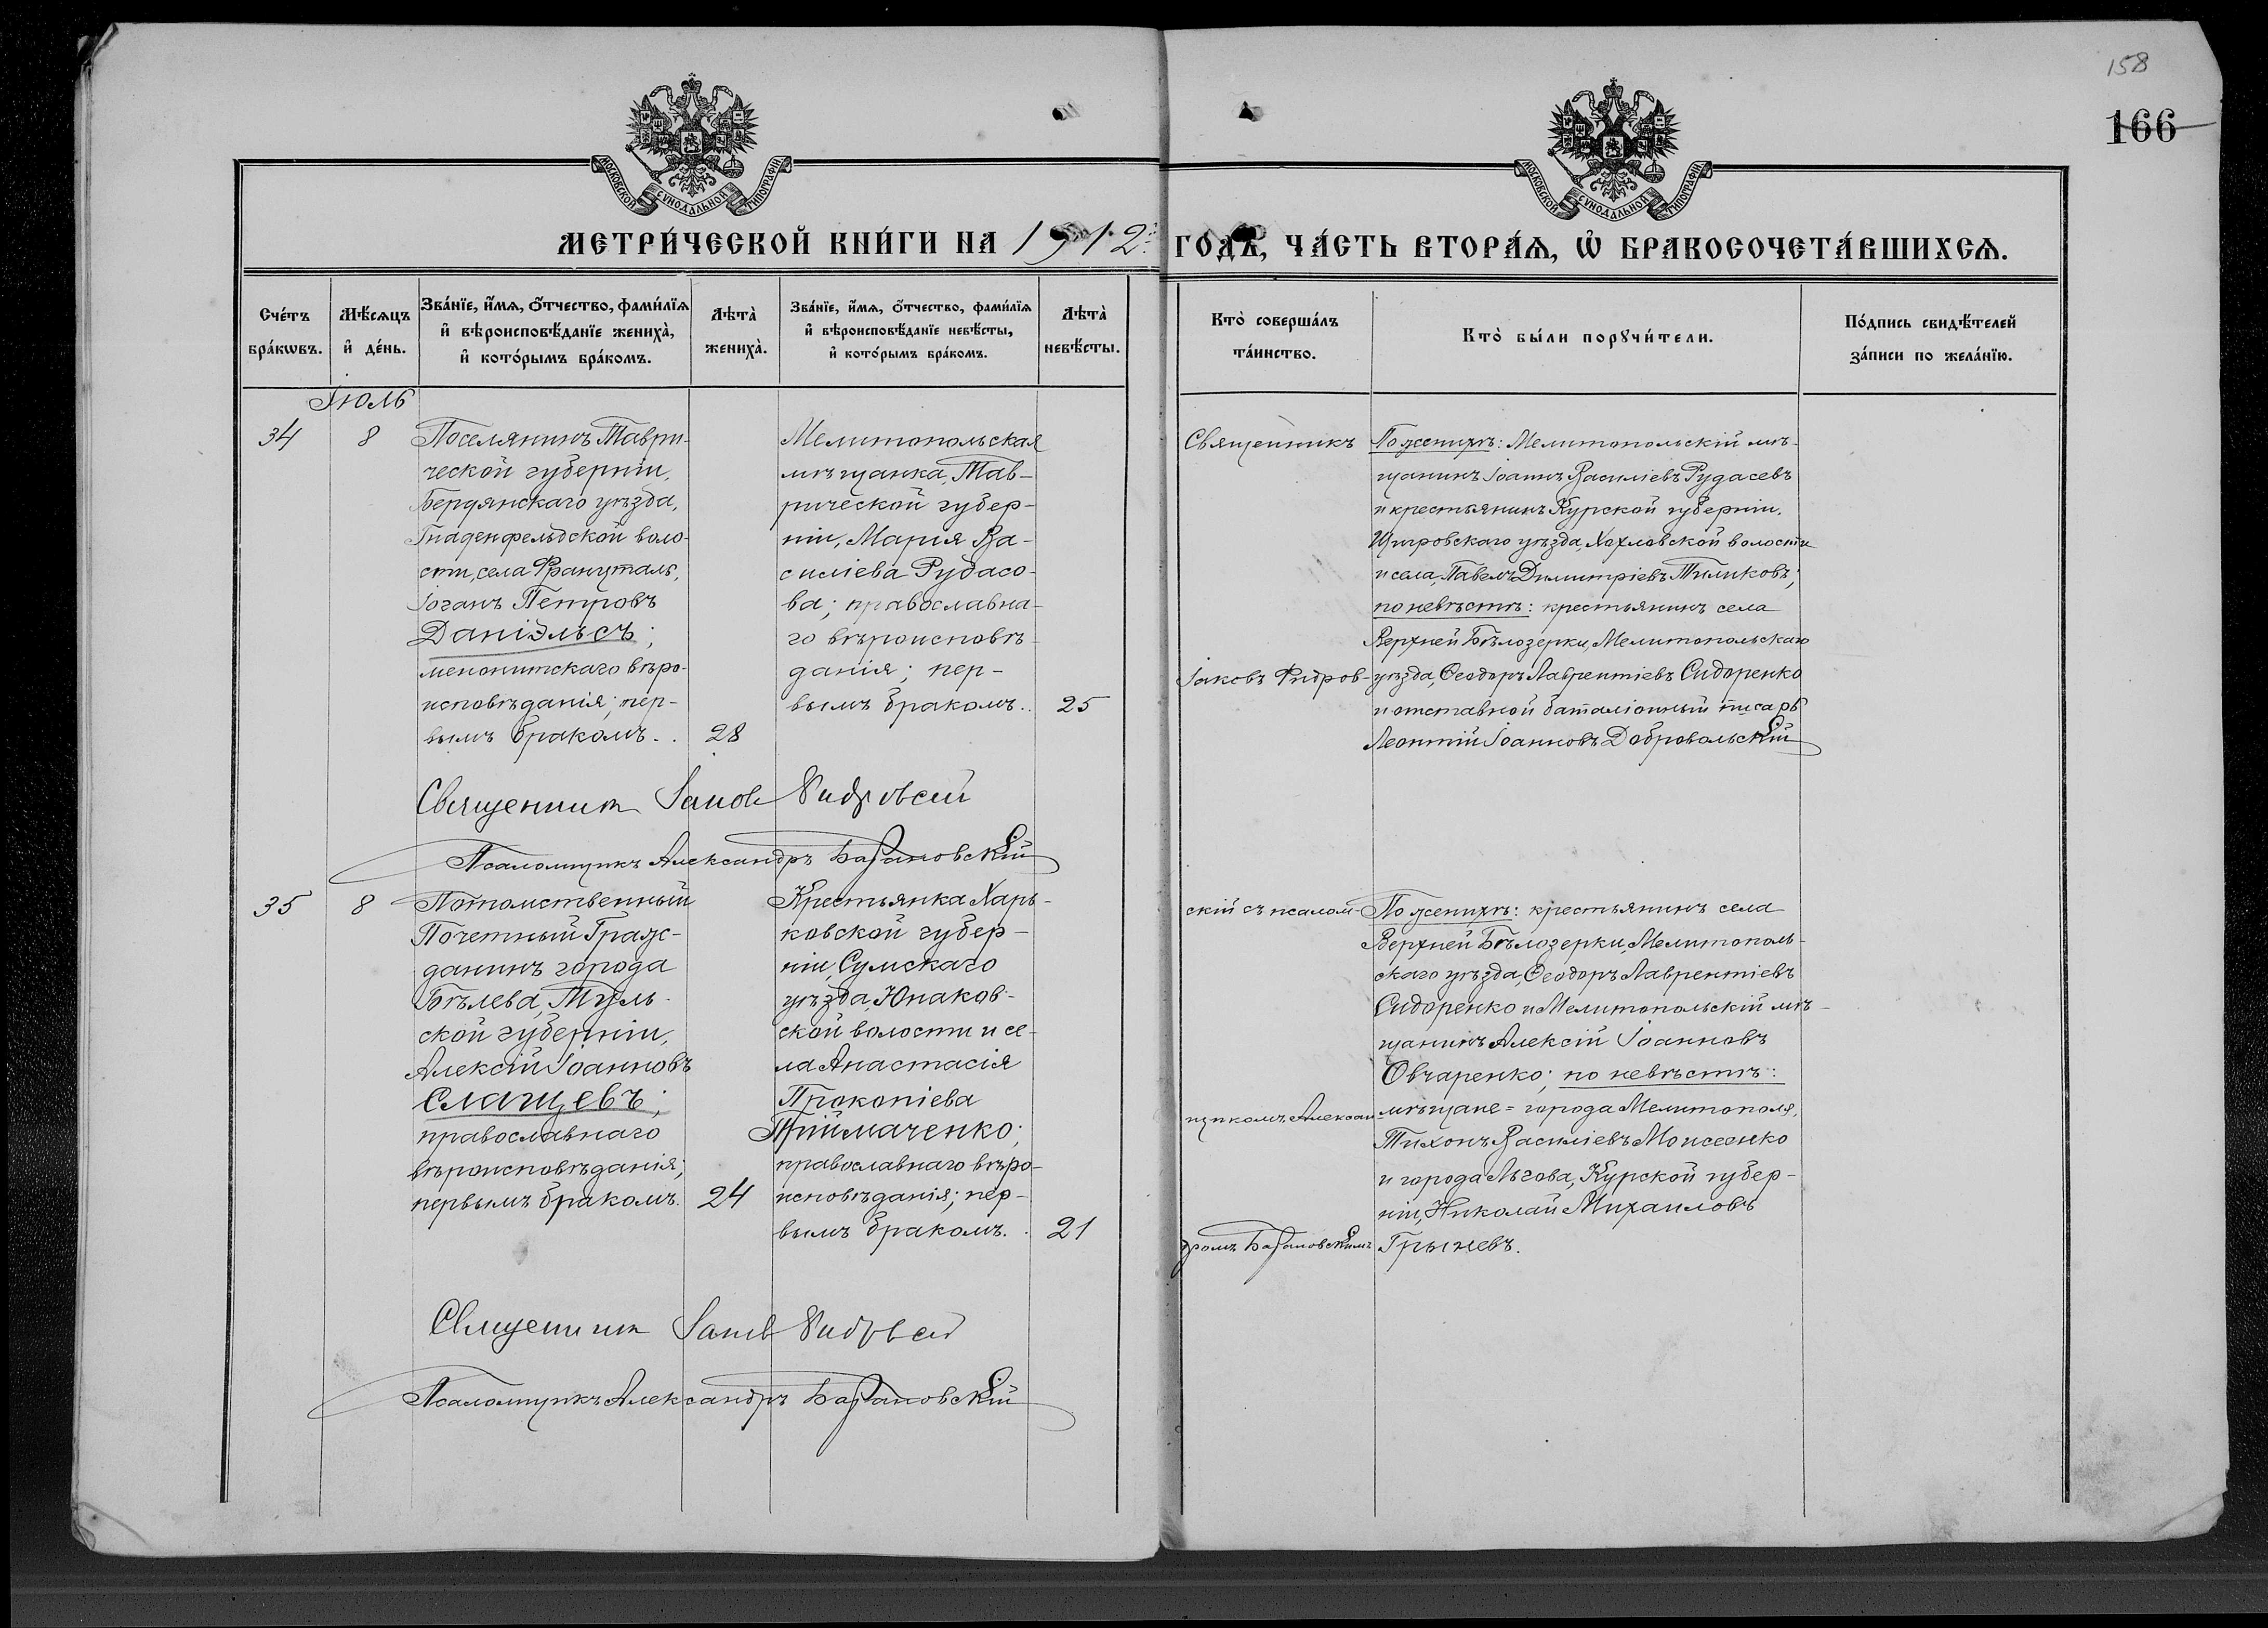 158
166
МОСКОВСКОЙ СѴНОДАЛЬНОЙ ТИПОГРАФІИ
МОСКОВСКОЙ СѴНОДАЛЬНОЙ ТИПОГРАФІИ
МЕТРИ́ЧЕСКОЙ КНИ́ГИ НА 1912 ГОДЪ, ЧА́СТЬ ВТОРА́Ѧ, Ѡ҆ БРАКОСОЧЕТА́ВШИХСѦ.
Сче́тъ
бра́кѡвъ.
Мѣ́сѧцъ
и҆ де́нь.
Зва́нїе, и҆́мѧ, ѻ҆́тчество, фами́лїѧ
и҆ вѣроисповѣ́данїе жениха̀,
и҆ кото́рымъ бра́комъ.
Лѣта̀
жениха̀.
Зва́нїе, и҆́мѧ, ѻ҆́тчество, фами́лїѧ
и҆ вѣроисповѣ́данїе невѣ́сты,
и҆ кото́рымъ бра́комъ.
Лѣта̀
невѣ́сты.
Кто̀ соверша́лъ
та́инство.
Кто̀ бы́ли порꙋчи́тели.
По́дпись свидѣ́телей
за́писи по жела́нїю.
Іюль
34
8
Поселянинъ Таври-
ческой губерніи,
Бердянскаго уѣзда,
Гнаденфельдской воло-
сти, села Францталь,
Іоганъ Петровъ
Даніэльсъ;
менонитскаго вѣро-
исповѣданія; пер-
вымъ бракомъ..
28
Мелитопольская
мѣщанка, Тав-
рической губер-
ніи, Марія Ва-
силіева Рудасо-
ва; православна-
го вѣроисповѣ-
данія; пер-
вымъ бракомъ..
25
Священникъ
Іаковъ Фидров-
По женихѣ: Мелитопольскій мѣ-
щанинъ Іоаннъ Василіевъ Рудасевъ
и крестьянинъ Курской губерніи,
Щигровскаго уѣзда, Хохловской волости
и села, Павелъ Димитріевъ Тиликовъ;
по невѣстѣ: крестьянинъ села
Верхней Бѣлозерки, Мелитопольскаго
уѣзда, Ѳеодоръ Лаврентіевъ Сидоренко
и отставной баталіонный писарь
Леонтій Іоанновъ Добровольскій
Священникъ Іаковъ Фидровскій
Псаломщикъ Александръ Барановскій
35
8
Потомственный
Почетный Граж-
данинъ города
Бѣлева, Туль-
ской губерніи,
Алексій Іоанновъ
Слащевъ;
православнаго
вѣроисповѣданія;
первымъ бракомъ.
24
Крестьянка Харь-
ковской губер-
ніи, Сумскаго
уѣзда, Юнаков-
ской волости и се-
ла Анастасія
Прокопіева
Пріймаченко;
православнаго вѣро-
исповѣданія; пер-
вымъ бракомъ..
21
скій съ псалом-
щикомъ Алексан-
дромъ Барановскимъ
По женихѣ: крестьянинъ села
Верхней Бѣлозерки, Мелитополь-
скаго уѣзда, Ѳеодоръ Лаврентіевъ
Сидоренко и Мелитопольскій мѣ-
щанинъ Алексій Іоанновъ
Овчаренко; по невѣстѣ:
мѣщане = города Мелитополя,
Тихонъ Василіевъ Моисеенко
и города Льгова, Курской губер-
ніи, Николай Михаиловъ
Грыневъ.
Священникъ Іаковъ Фидровскій
Псаломщикъ Александръ Барановскій